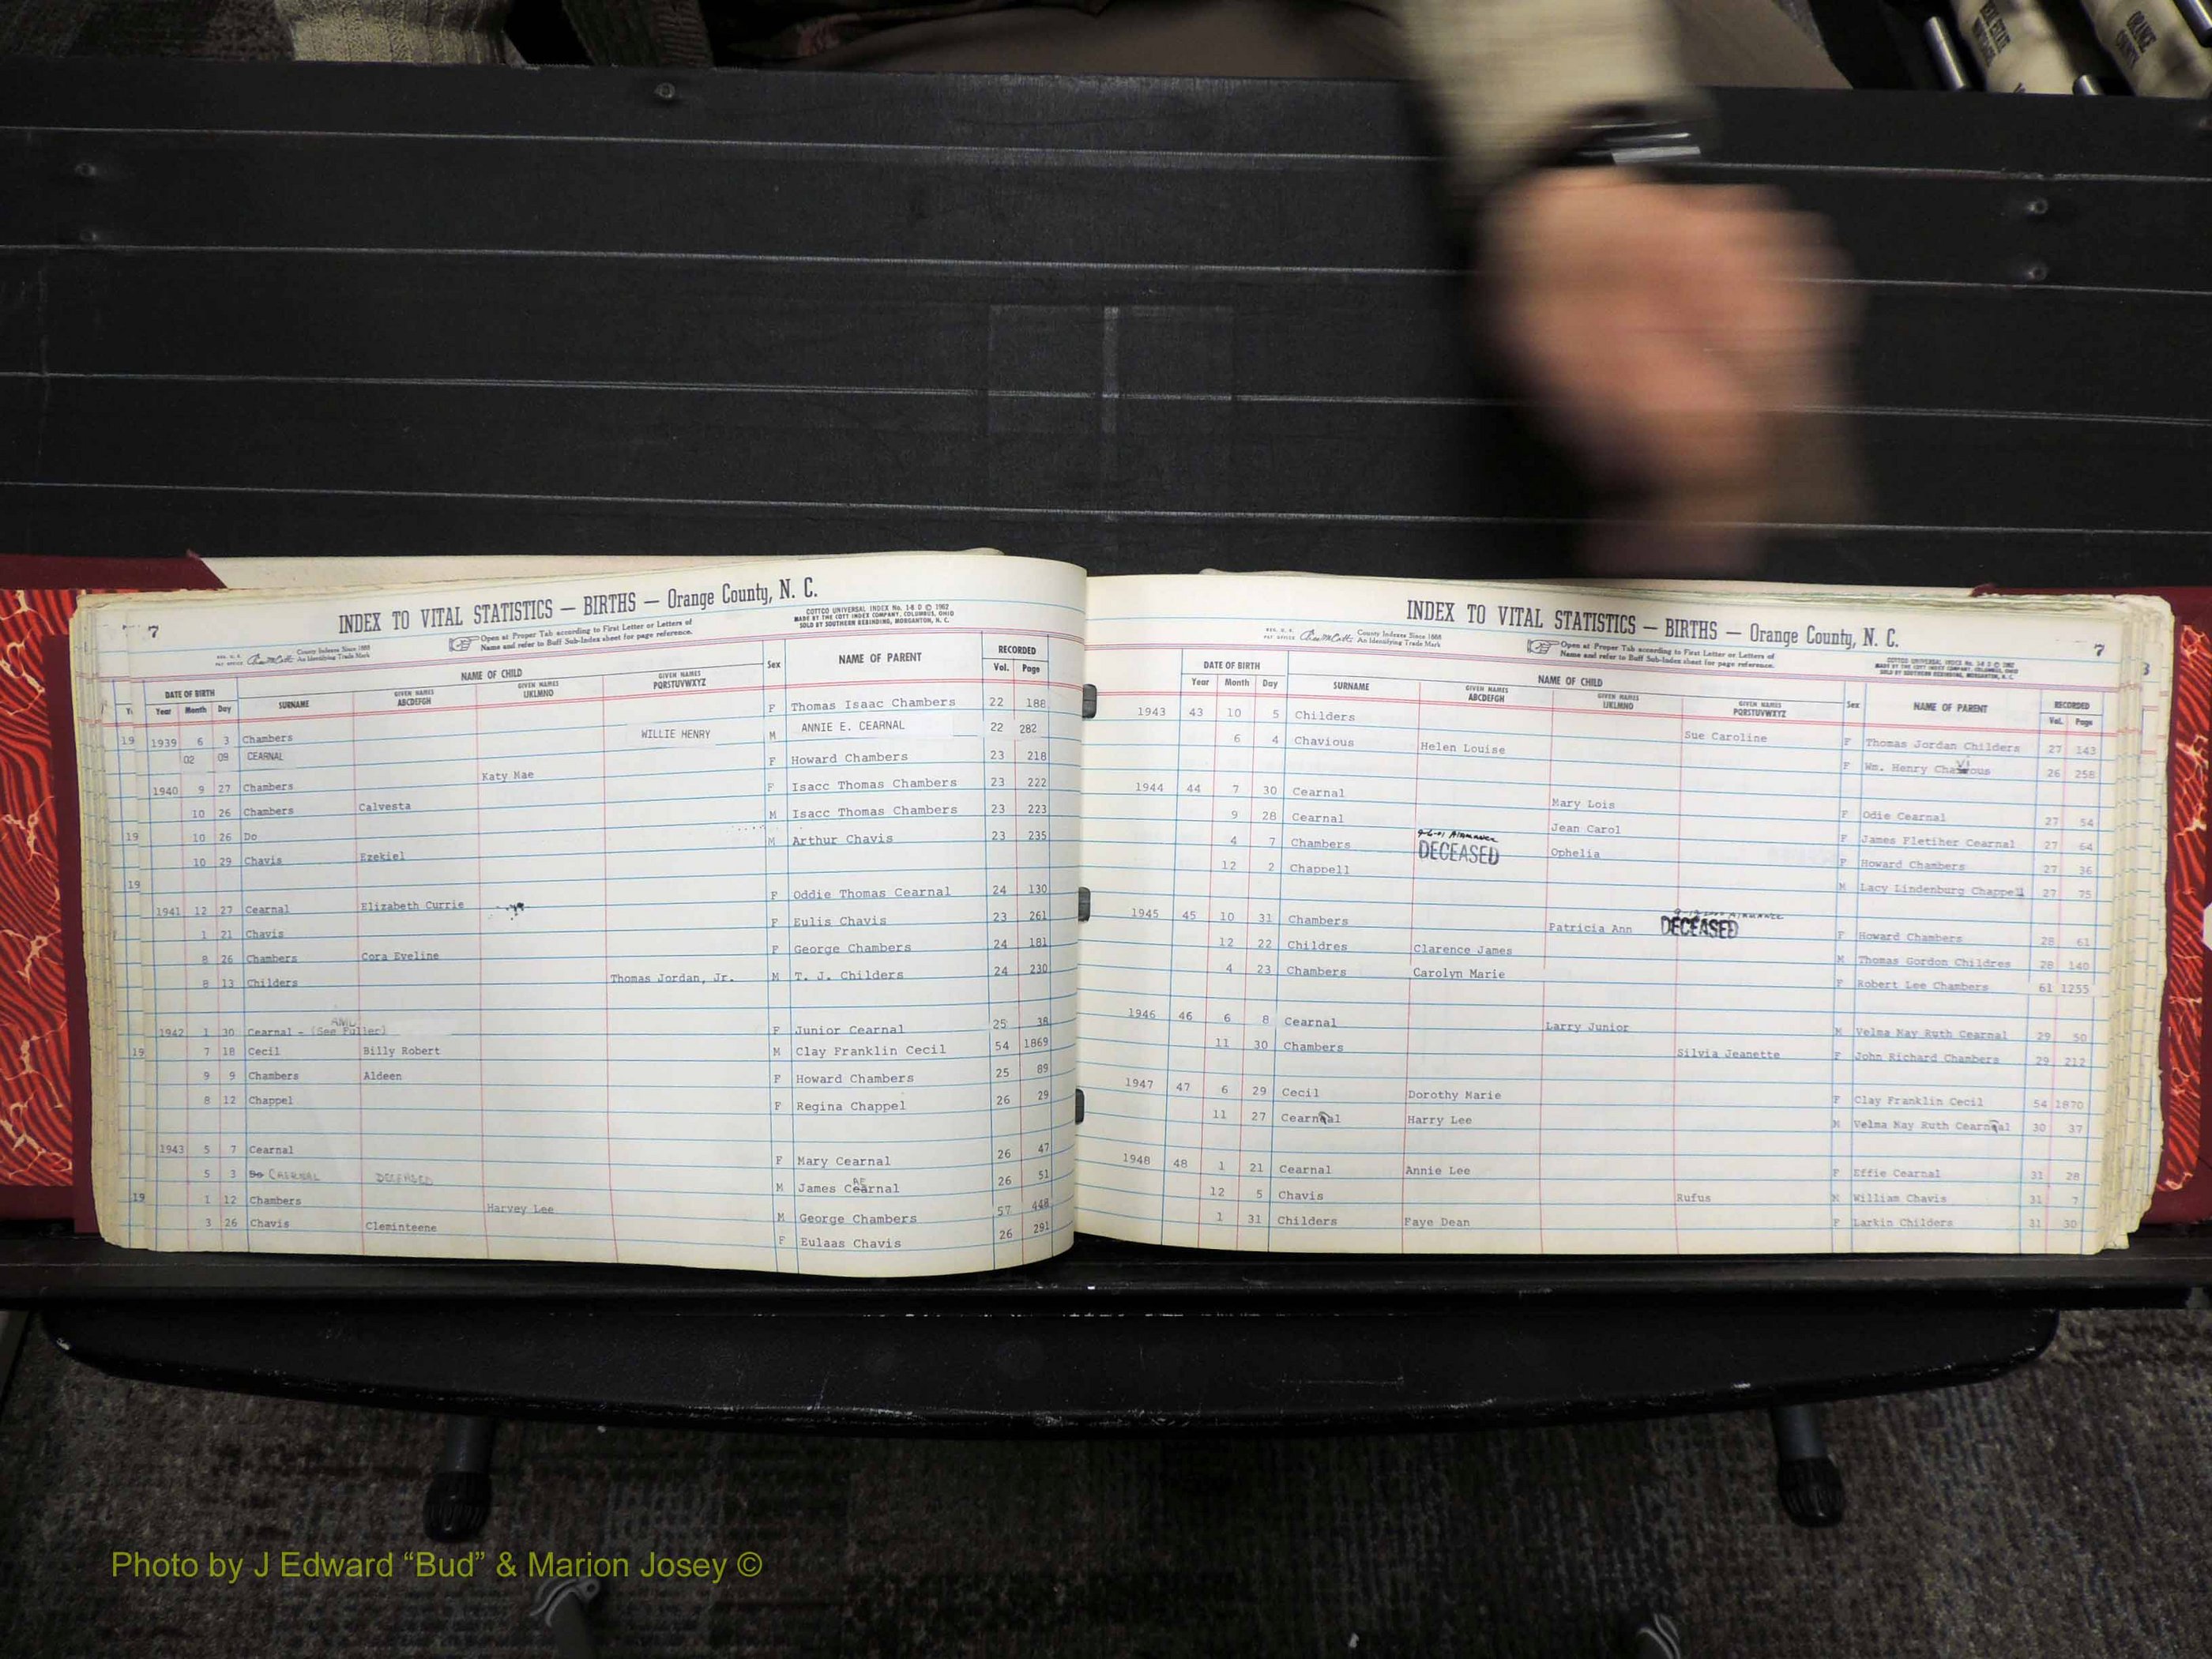 ORANGE COUNTY
7
INDEX TO VITAL STATISTICS — BIRTHS — Orange County, N. C.
COTTCO UNIVERSAL INDEX No. 1-8 D © 1962
MADE BY THE COTT INDEX COMPANY, COLUMBUS, OHIO
SOLD BY SOUTHERN REBINDING, MORGANTON, N. C.
County Indexes Since 1888
An Identifying Trade Mark
Open at Proper Tab according to First Letter or Letters of
Name and refer to Buff Sub-Index sheet for page reference.
DATE OF BIRTH NAME OF CHILD Sex NAME OF PARENT RECORDED
Year Month Day SURNAME GIVEN NAMES ABCDEFGH GIVEN NAMES IJKLMNO GIVEN NAMES PQRSTUVWXYZ Vol. Page
1939 6 3 Chambers F Thomas Isaac Chambers 22 188
02 09 CEARNAL WILLIE HENRY M ANNIE E. CEARNAL 22 282
1940 9 27 Chambers Katy Mae F Howard Chambers 23 218
10 26 Chambers Calvesta F Isacc Thomas Chambers 23 222
10 26 Do M Isacc Thomas Chambers 23 223
10 29 Chavis Ezekiel M Arthur Chavis 23 235
1941 12 27 Cearnal Elizabeth Currie F Oddie Thomas Cearnal 24 130
1 21 Chavis F Eulis Chavis 23 261
8 26 Chambers Cora Eveline F George Chambers 24 181
8 13 Childers Thomas Jordan, Jr. M T. J. Childers 24 230
1942 1 30 Cearnal - (See Fuller) F Junior Cearnal 25 38
7 18 Cecil Billy Robert M Clay Franklin Cecil 54 1869
9 9 Chambers Aldeen F Howard Chambers 25 89
8 12 Chappel F Regina Chappel 26 29
1943 5 7 Cearnal F Mary Cearnal 26 47
5 3 Do CAERNAL DECEASED M James Cearnal AE 26 51
1 12 Chambers Harvey Lee M George Chambers 57 448
3 26 Chavis Cleminteene F Eulaas Chavis 26 291
INDEX TO VITAL STATISTICS — BIRTHS — Orange County, N. C.
7
County Indexes Since 1888
An Identifying Trade Mark
Open at Proper Tab according to First Letter or Letters of
Name and refer to Buff Sub-Index sheet for page reference.
DATE OF BIRTH NAME OF CHILD Sex NAME OF PARENT RECORDED
Year Month Day SURNAME GIVEN NAMES ABCDEFGH GIVEN NAMES IJKLMNO GIVEN NAMES PQRSTUVWXYZ Vol. Page
1943 43 10 5 Childers Sue Caroline F Thomas Jordan Childers 27 143
6 4 Chavious Helen Louise F Wm. Henry Chavious 26 258
1944 44 7 30 Cearnal Mary Lois F Odie Cearnal 27 54
9 28 Cearnal Jean Carol F James Fletiher Cearnal 27 64
4 7 Chambers DECEASED Ophelia F Howard Chambers 27 36
12 2 Chappell M Lacy Lindenburg Chappell 27 75
1945 45 10 31 Chambers Patricia Ann DECEASED F Howard Chambers 28 61
12 22 Childres Clarence James M Thomas Gordon Childres 28 140
4 23 Chambers Carolyn Marie F Robert Lee Chambers 61 1255
1946 46 6 8 Cearnal Larry Junior M Velma May Ruth Cearnal 29 50
11 30 Chambers Silvia Jeanette F John Richard Chambers 29 212
1947 47 6 29 Cecil Dorothy Marie F Clay Franklin Cecil 54 1870
11 27 Cearnal Harry Lee M Velma May Ruth Cearnal 30 37
1948 48 1 21 Cearnal Annie Lee F Effie Cearnal 31 28
12 5 Chavis Rufus M William Chavis 31 7
1 31 Childers Faye Dean F Larkin Childers 31 30
Photo by J Edward “Bud” & Marion Josey ©